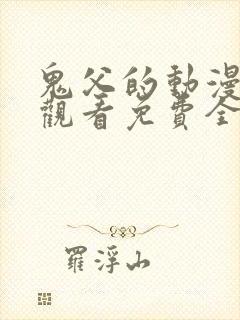 鬼父的動漫
觀看免費全
羅浮山